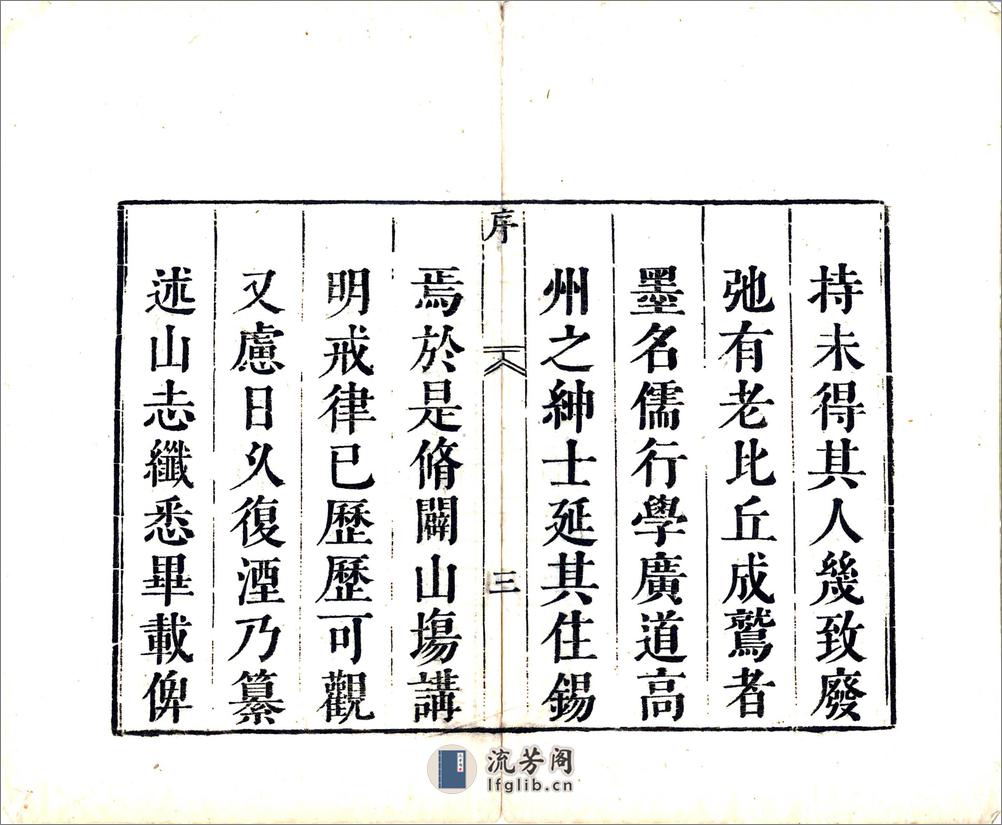 持未得其人幾致廢
弛有老比丘成鷲者
墨名儒行學廣道高
州之紳士延其住錫
序
三
焉於是脩闢山塲講
明戒律已歷歷可觀
又慮日久復湮乃纂
述山志纖悉畢載俾
流芳阁
lfglib.cn